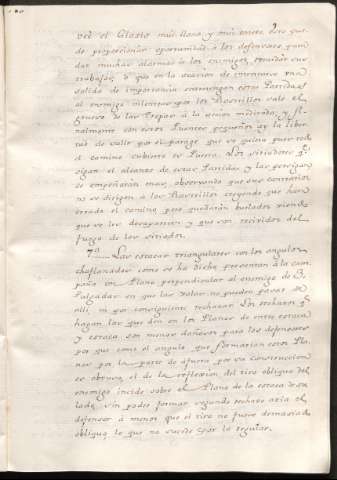 ver el Glasis mui llano, y mui entre esto que-
de proporcionar oportunidad a los defensores, para
dar muchas alarmas a los enemigos, retardar sus
trabajos; o que en la ocasion de executarse una
salida de importancia entretengan estas Partidas
al enemigo mientras por los Rastrillos sale el
grueso de las Tropas a la accion meditada; y fi-
nalmente con estos Puentes pequeños ay la liber-
tad de salir por el parage que se quiera pues todo
el camino cubierto es Puerta. Los sitiadores q.e
sigan el alcance de estas Partidas, y las persigan
se empeñarán mas, observando que sus contrarios
no se dirigen a los Rastrillos creyendo que han
errado el camino, pero quedarán burlados viendo
que se les desaparecen y que son recividos del
fuego de los sitiados.
7.a Las estacas triangulares con los angulos
chaflanados como se ha dicho, presentan a la cam-
paña un Plano perpendicular al enemigo de 3
Pulgadas en que las valas no pueden pasar de
alli, ni por consiguiente rechazar. Los rechazos q.e
hagan las que den en los Planos de entre estaca
y estaca son menos dañosos para los defensores
por que como el angulo que forman estos Pla-
nos por la parte de afuera por su construccion
es obtuso, el de la reflexion del tiro obliquo del
enemigo incide sobre el Plano de la estaca de su
lado, sin poder formar segundo rechazo azia el
defensor a menos que el tiro no fuese demasiado
obliquo, lo que no sucede por lo regular.